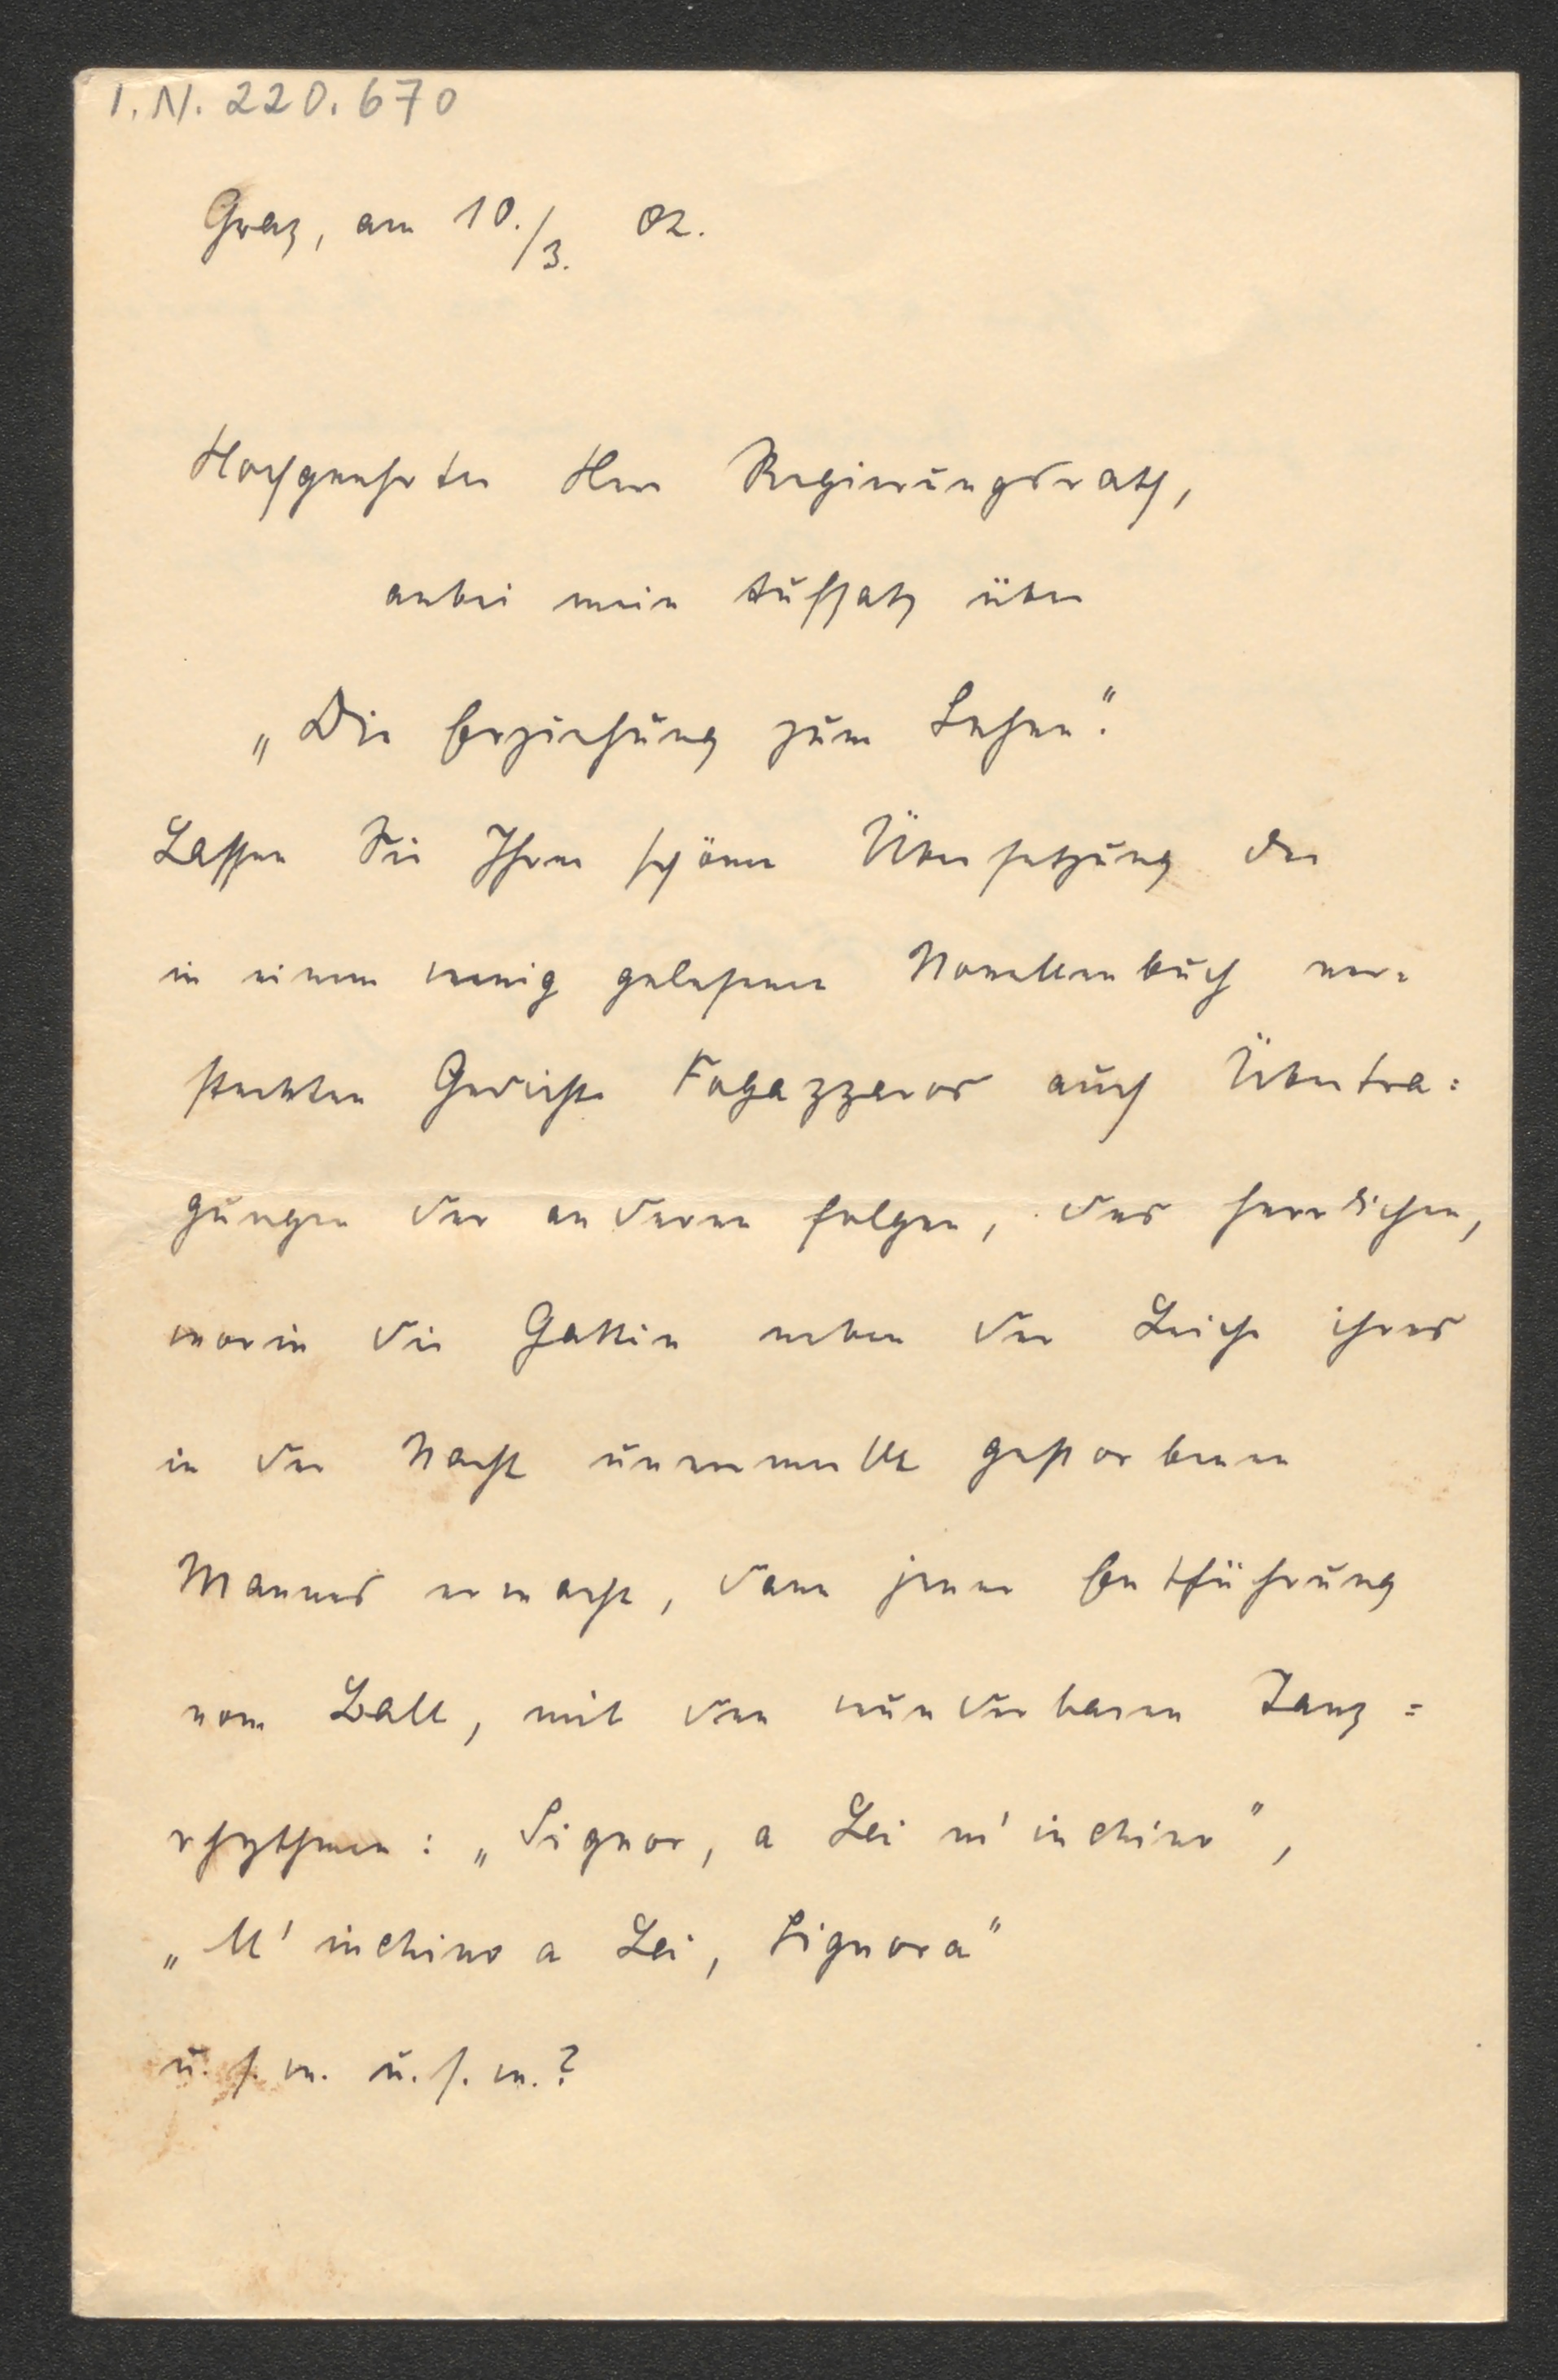 I. N. 220.670
Graz, am 10./3. 02.
Hochgeehrter Herr Regierungsrath,
anbei mein Aufsatz über
„Die Erziehung zum Sehen“.
Lassen Sie Ihrer schönen Übersetzung der
in einem wenig gelesenen Novellenbuch ver=
steckten Gedichte Fogazzaros auch Übertra=
gungen der anderen folgen, des herrlichen,
worin die Gattin neben der Leiche ihres
in der Nacht unvermerkt gestorbenen
Mannes erwacht, dann jener Entführung
vom Ball, mit den wunderbaren Tanz=
rhythmen: „Signor, a Lei m'inchino“,
„M'inchino a Lei, Signora“
u. s. w. u. s. w.?